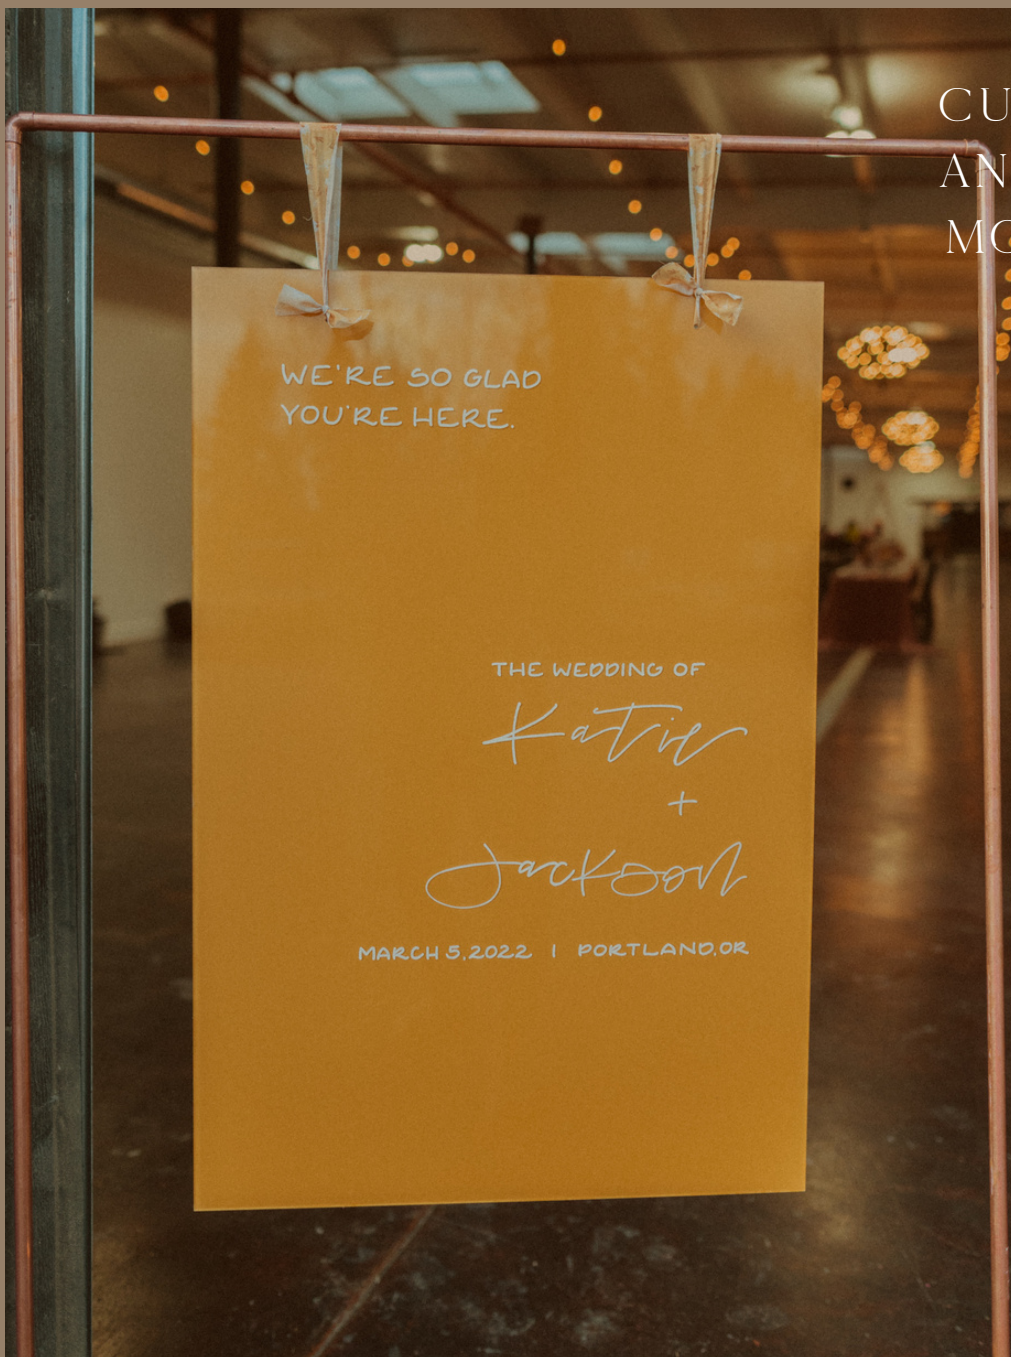 WE'RE SO GLAD
YOU'RE HERE.
THE WEDDING OF
Katie
+
Jackson
MARCH 5, 2022 | PORTLAND, OR
CU
AN
MO